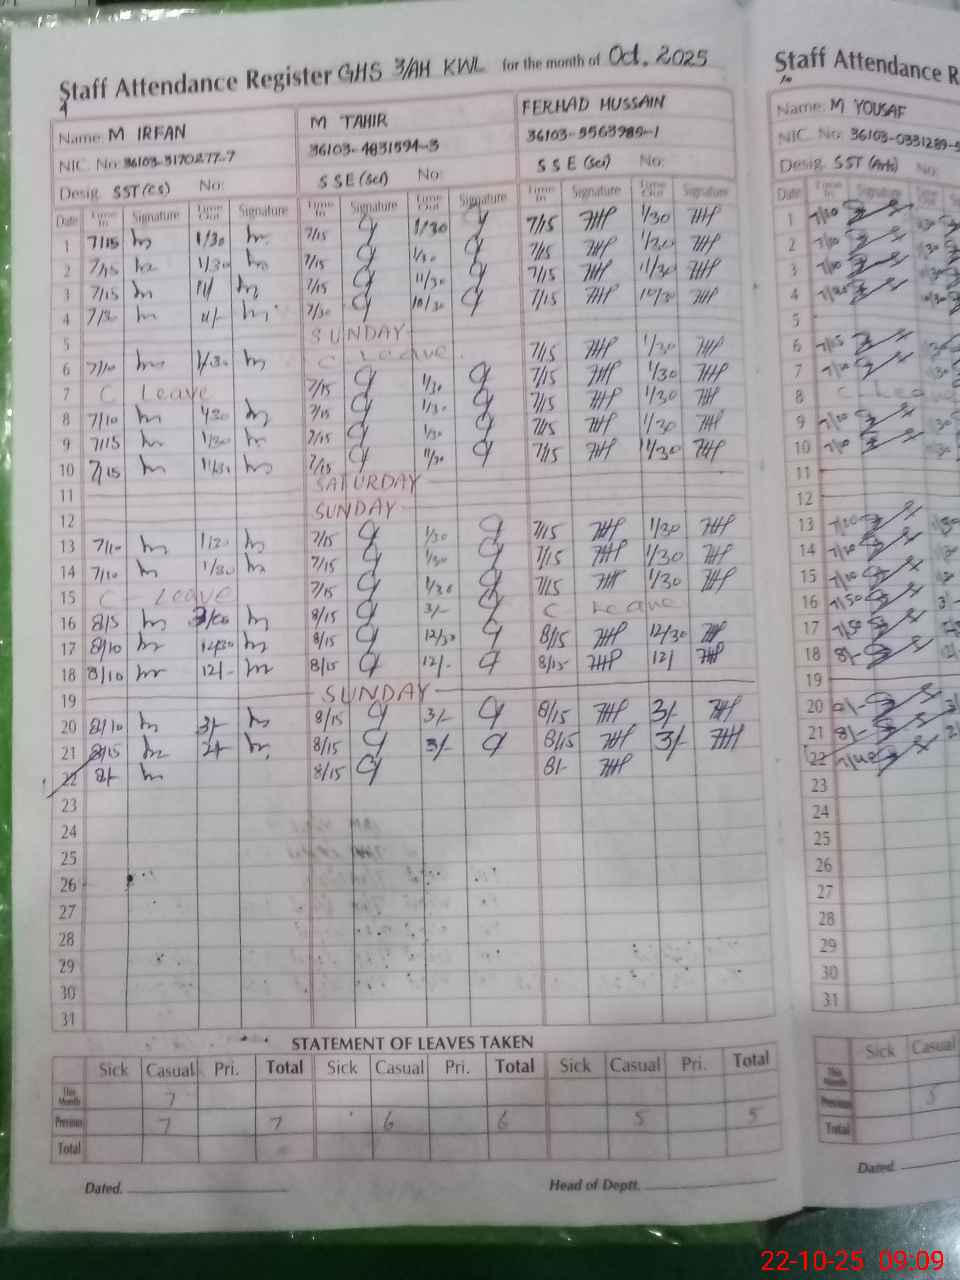 Staff Attendance Register GHS 3/AH KWL for the month of Oct. 2025
Name: M IRFAN
NIC. No: 36103-3170277-7
Desig. SST(CS) No:
M TAHIR
36103-4831594-3
SSE (Sci) No:
FERHAD HUSSAIN
36103-5563989-1
SSE (Sci) No:
Date Time In Signature Time Out Signature Time In Signature Time Out Signature Time In Signature Time Out Signature
1 7/15 1/30 7/15 1/30 7/15 1/30
2 7/15 1/30 7/15 1/30 7/15 1/30
3 7/15 11/ 7/15 11/30 7/15 11/30
4 11/- 7/30 10/30 7/15 10/30
5 SUNDAY
6 7/10 1/30 C Leave 7/15 1/30
7 C Leave 7/15 1/30 7/15 1/30
8 7/10 1/30 7/15 1/30 7/15 1/30
9 7/15 1/30 7/15 1/30 7/15 1/30
10 7/15 11/30 7/15 11/30 7/15 11/30
11 SATURDAY
12 SUNDAY
13 7/10 1/30 7/15 1/30 7/15 1/30
14 7/10 1/30 7/15 1/30 7/15 1/30
15 C Leave 7/15 1/30 7/15 1/30
16 8/5 8/15 3/- C Leave
17 8/10 12/30 8/15 12/30 8/15 12/30
18 8/10 12/- 8/15 12/- 8/15 12/
19 SUNDAY
20 8/10 3/- 8/15 3/- 8/15 3/-
21 8/15 8/15 3/- 8/15 3/-
22 8/- 8/15 8/-
23
24
25
26
27
28
29
30
31
STATEMENT OF LEAVES TAKEN
Sick Casual Pri. Total Sick Casual Pri. Total Sick Casual Pri. Total
This Month 7
Previous 7 7 6 6 5 5
Total
Dated. Head of Deptt.
Staff Attendance R
Name: M YOUSAF
NIC. No: 36103-0331289-
Desig. SST (Arts) No:
Date Time In Signature
1 7/10
2 7/10
3 7/10
4
5
6 7/15
7 7/10
8 C Leave
9
10 7/10
11
12
13
14
15 7/10
16 7/50
17 7/50
18 8/-
19
20
21 8/-
22
23
24
25
26
27
28
29
30
31
Sick Casual
This Month
Previous 5
Total
Dated.
22-10-25 09:09